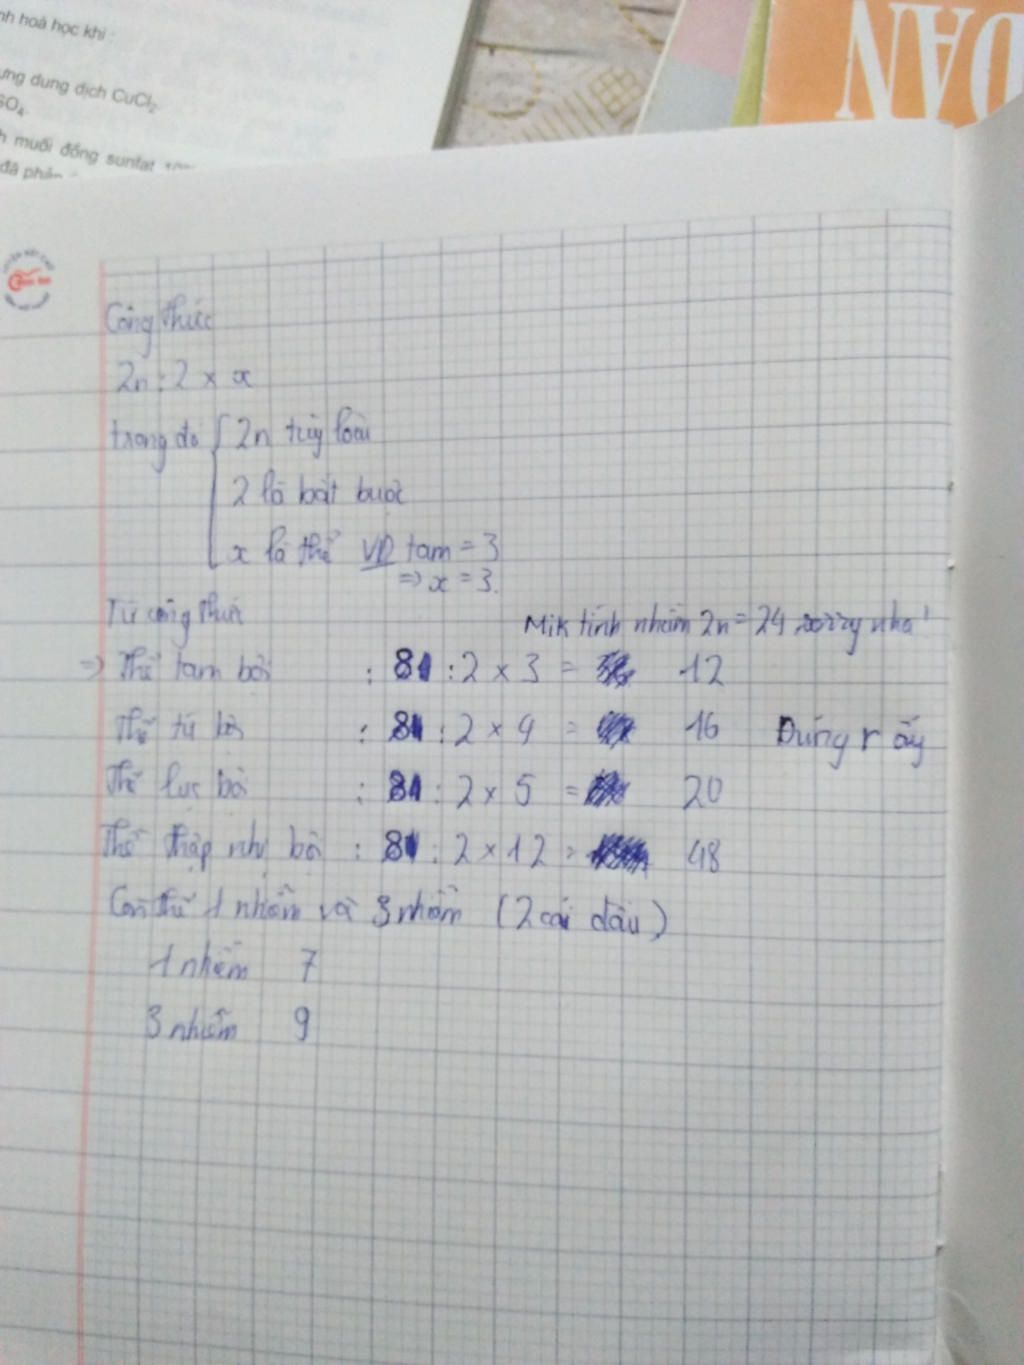 nh hoá học khi :
ưng dung dịch CuCl2
SO4.
h muối đồng sunfat
đã phản
DÂN
Công thức
2n : 2 x x
trong đó { 2n tùy loài
2 là bắt buộc
x là thể VD tam = 3
=> x = 3.
Từ công thức
Mik tính nhầm 2n = 24 sorry nha!
=> Thể tam bội : 8 : 2 x 3 = 12
Thể tứ bội : 8 : 2 x 4 = 16 Đúng r ấy
Thể lục bội : 8 : 2 x 5 = 20
Thể thập nhị bội : 8 : 2 x 12 = 48
Còn thể 1 nhiễm và 3 nhiễm (2 cái đầu)
1 nhiễm 7
3 nhiễm 9